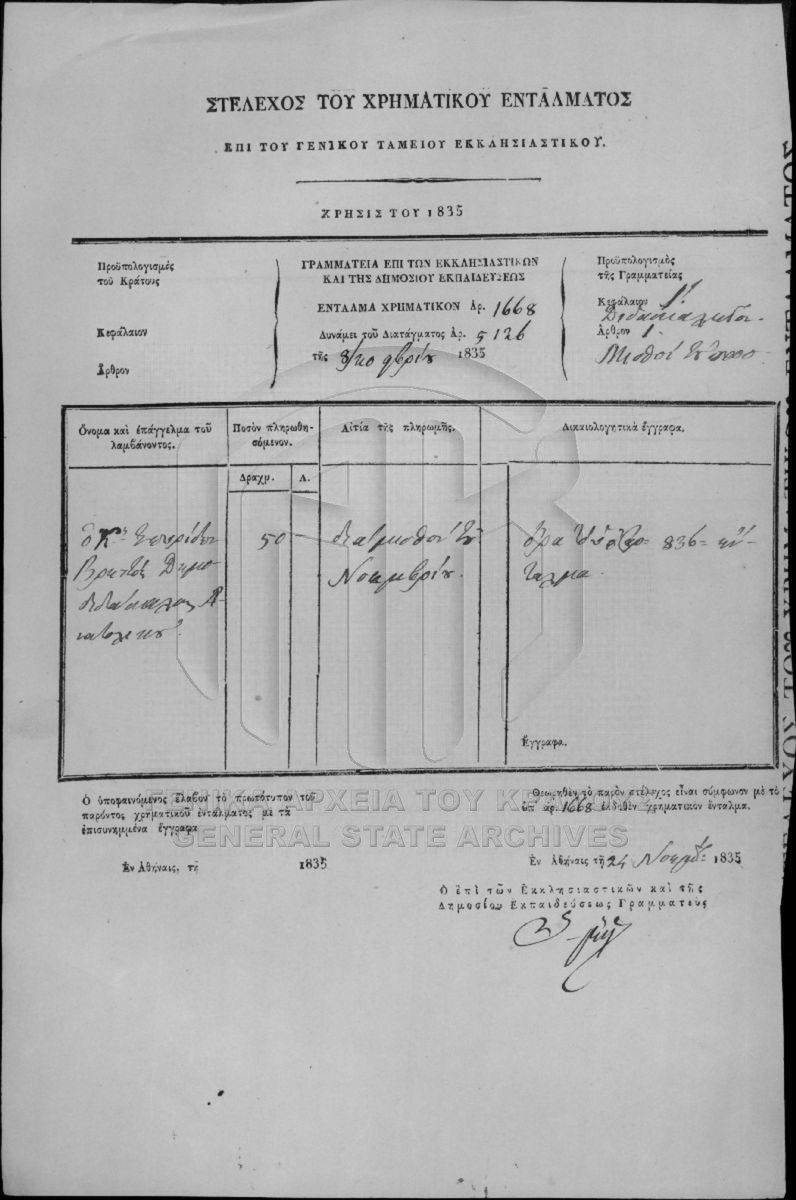 ΣΤΕΛΕΧΟΣ ΤΟΥ ΧΡΗΜΑΤΙΚΟΥ ΕΝΤΑΛΜΑΤΟΣ
ΕΠΙ ΤΟΥ ΓΕΝΙΚΟΥ ΤΑΜΕΙΟΥ ΕΚΚΛΗΣΙΑΣΤΙΚΟΥ.
ΧΡΗΣΙΣ ΤΟΥ 1835
Προϋπολογισμὸς
τοῦ Κράτους
Κεφάλαιον
Ἄρθρον
ΓΡΑΜΜΑΤΕΙΑ ΕΠΙ ΤΩΝ ΕΚΚΛΗΣΙΑΣΤΙΚΩΝ
ΚΑΙ ΤΗΣ ΔΗΜΟΣΙΟΥ ΕΚΠΑΙΔΕΥΣΕΩΣ
ΕΝΤΑΛΜΑ ΧΡΗΜΑΤΙΚΟΝ Ἀρ. 1668
Δυνάμει τοῦ Διατάγματος Ἀρ. 5126
τῆς 8/20 1835
Προϋπολογισμὸς
τῆς Γραμματείας
Κεφάλαιον
Ἄρθρον 1.
Μισθοὶ
Ὄνομα καὶ ἐπάγγελμα τοῦ
λαμβάνοντος.
Ποσὸν πληρωθη-
σόμενον.
Αἰτία τῆς πληρωμῆς.
Δικαιολογητικὰ ἔγγραφα.
Δραχμ.
Λ.
ὁ Κ. Σπυρίδων
Δημο-
διδάσκαλος
50 -
διὰ μισθοὺς
Νοεμβρίου.
836
ταλμα
Ἔγγραφα.
Ὁ ὑποφαινόμενος ἔλαβον τὸ πρωτότυπον τοῦ
παρόντος χρηματικοῦ ἐντάλματος μὲ τὰ
ἐπισυνημμένα ἔγγραφα
Ἐν Ἀθήναις, τῇ 1835
Θεωρηθὲν τὸ παρὸν στέλεχος εἶναι σύμφωνον μὲ τὸ
ὑπ' ἀρ. 1668 ἐκδοθὲν χρηματικὸν ἔνταλμα.
Ἐν Ἀθήναις τῇ 24 1835
Ὁ ἐπὶ τῶν Ἐκκλησιαστικῶν καὶ τῆς
Δημοσίου Ἐκπαιδεύσεως Γραμματεὺς
ΓΕΝΙΚΑ ΑΡΧΕΙΑ ΤΟΥ ΚΡΑΤΟΥΣ
GENERAL STATE ARCHIVES